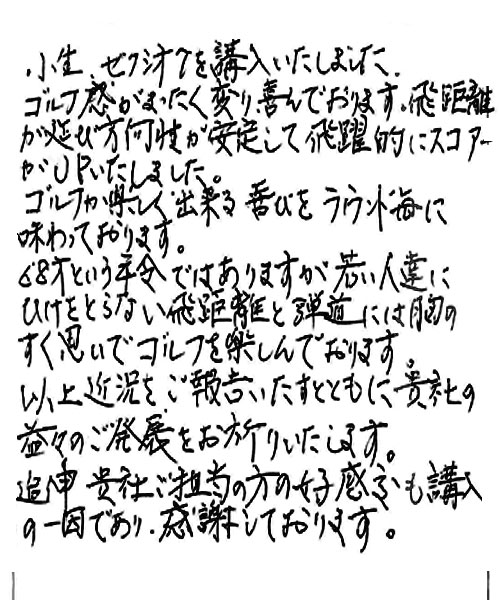 小生、ゼクシオ7を講入いたしました、
ゴルフ感がまったく変り喜んでおります。飛距離
が延び方向性が安定して飛躍的にスコアー
がUPいたしました。
ゴルフが楽しく出来る喜びをラウンド毎に
味わっております。
68才という年令ではありますが若い人達に
ひけをとらない飛距離と弾道には胸の
すく思いでゴルフを楽しんでおります。
以上近況をご報告いたすとともに、貴社の
益々のご発展をお祈りいたします。
追伸 貴社ご担当の方の好感ぶも講入
の一因であり、感謝しております。